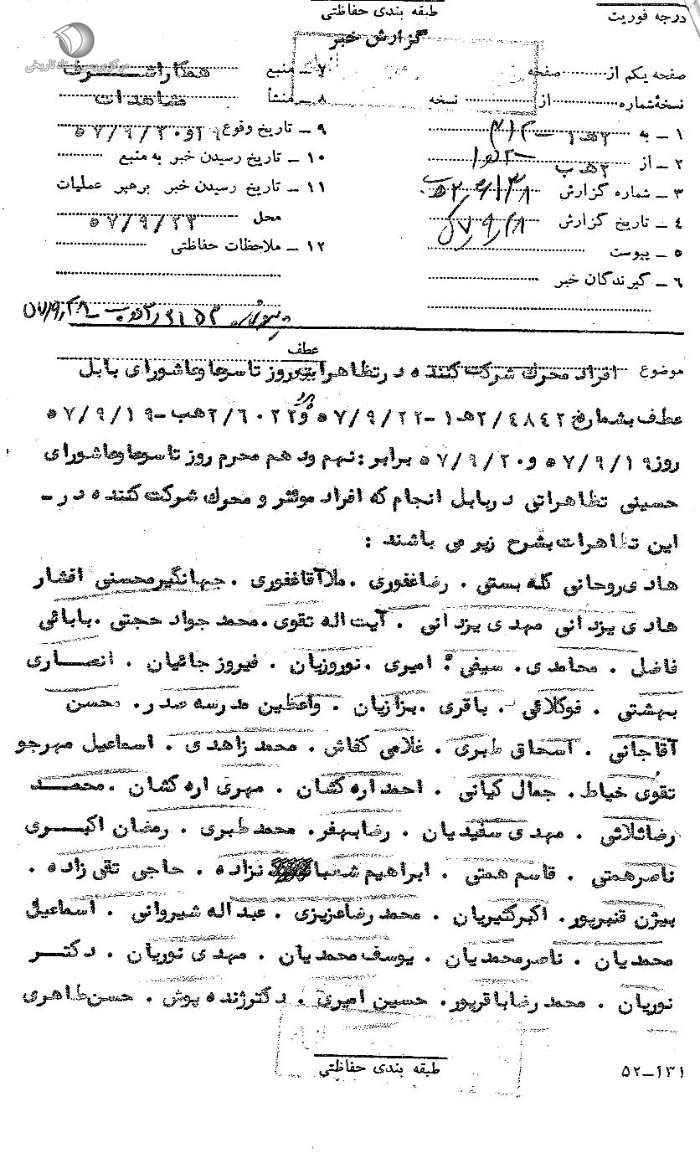 درجه فوریت
طبقه بندی حفاظتی
گزارش خبر
مرکز بررسی اسناد تاریخی
صفحه یکم از صفحه
نسخهٔ شماره از نسخه
۱ ـ به
۲ ـ از
۳ ـ شماره گزارش
۴ ـ تاریخ گزارش
۵ ـ پیوست
۶ ـ گیرندگان خبر
۷ ـ منبع همکار اشرف
۸ ـ منشأ مشاهدات
۹ ـ تاریخ وقوع
۱۰ ـ تاریخ رسیدن خبر به منبع
۱۱ ـ تاریخ رسیدن خبر برهبر عملیات
محل ۵۷/۹/۲۳
۱۲ ـ ملاحظات حفاظتی
موضوع افراد محرک شرکت کننده در تظاهرات روز تاسوعا و عاشورای بابل
عطف
عطف بشماره ۲/۴۸۴۲ه۱-۵۷/۹/۲۲ و ۲/۶۰۲۲هب-۵۷/۹/۱۹
روز ۵۷/۹/۱۹ و ۵۷/۹/۲۰ برابر: نهم و دهم محرم روز تاسوعا و عاشورای
حسینی تظاهراتی در بابل انجام که افراد موثر و محرک شرکت کننده در ـ
این تظاهرات بشرح زیر می باشند :
هادی روحانی گله بستی . رضا غفوری . ملا آقا غفوری . جهانگیر محسنی افشار
هادی یزدانی مهدی یزدانی . آیت اله تقوی . محمد جواد حجتی . بابائی
فاضل . محامدی . سیفی . امیری . نوروزیان . فیروز جائیان . انصاری
بهشتی . فوکلائی . باقری . بزازیان . واعظین مدرسه صدر . محسن
آقاجانی . اسحاق طبری . غلامی کفاش . محمد زاهدی . اسماعیل مهرجو
تقوی خیاط . جمال کیانی . احمد اره کشان . مهری اره کشان . محمد
رضا ثلاثی . مهدی سفیدیان . رضا بهفر . محمد طبری . رمضان اکبری
ناصر همتی . قاسم همتی . ابراهیم شعبا نزاده . حاجی تقی زاده .
بیژن قنبرپور . اکبر کثیریان . محمد رضا عزیزی . عبداله شیروانی . اسماعیل
محمدیان . ناصر محمدیان . یوسف محمدیان . مهدی نوریان . دکتر
نوریان . محمد رضا باقرپور . حسین امیری . دکتر ژنده پوش . حسن طاهری
طبقه بندی حفاظتی
۵۲ـ۱۳۱